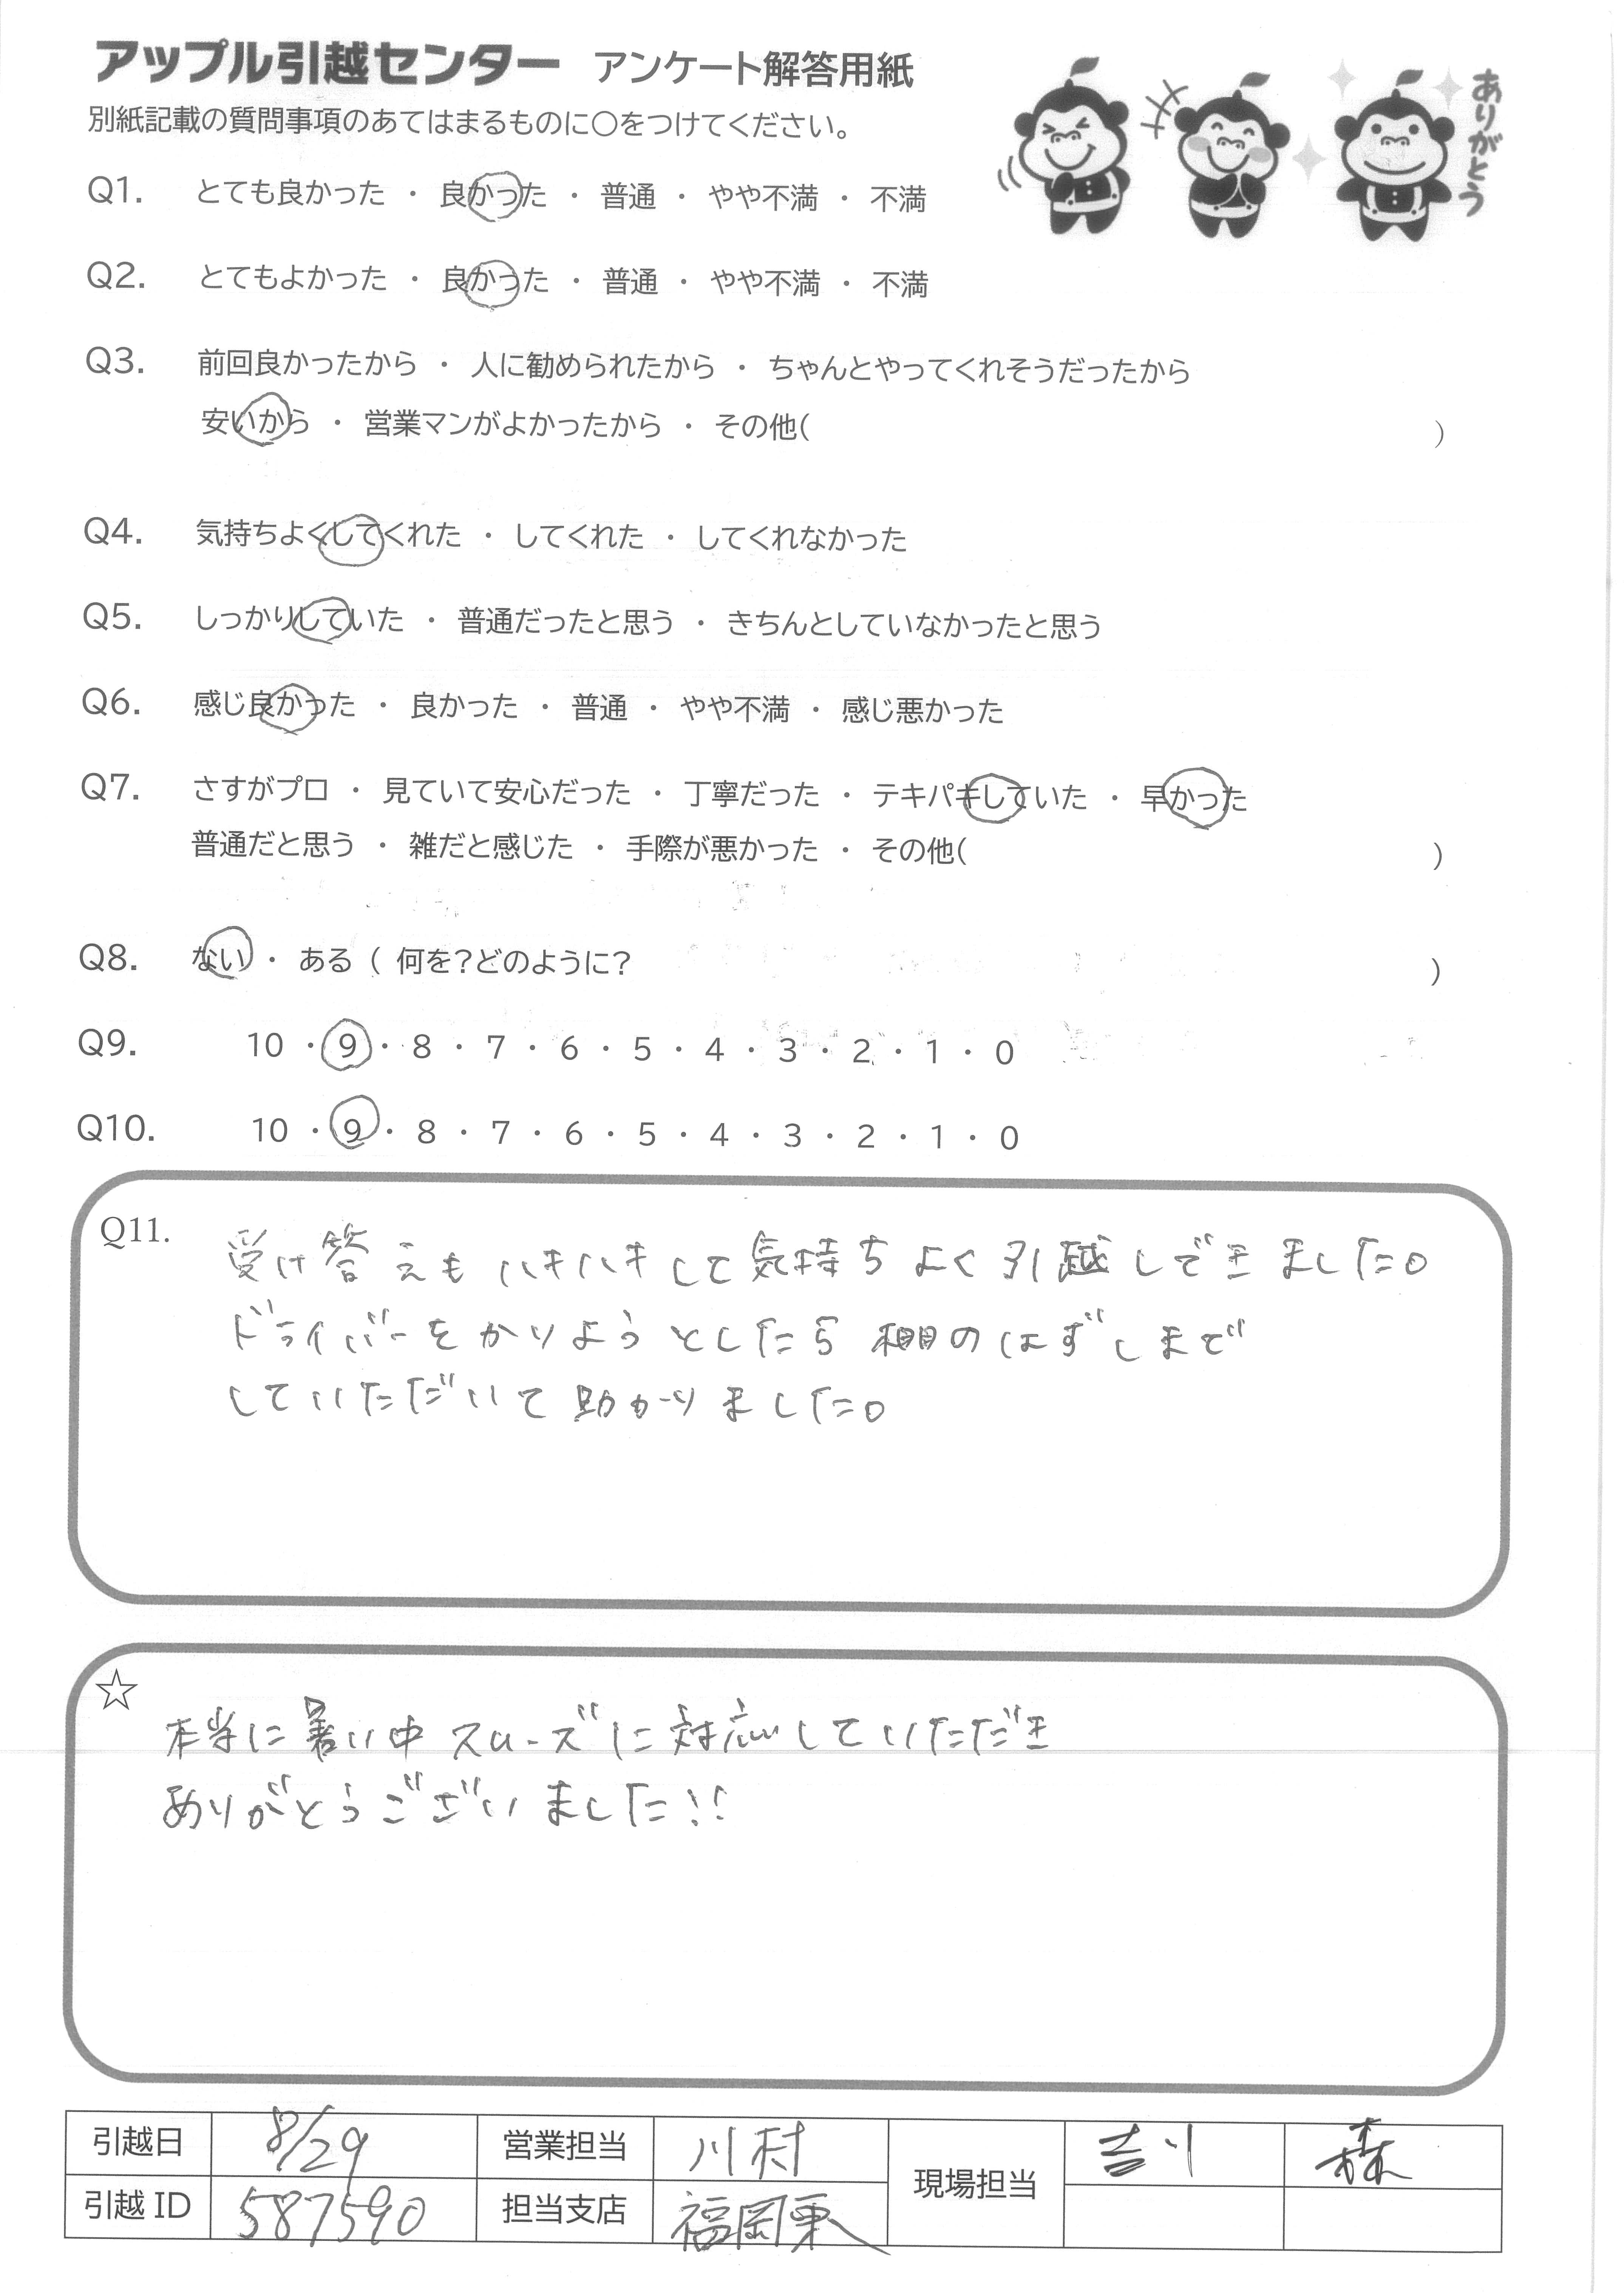 アップル引越センター アンケート解答用紙
別紙記載の質問事項のあてはまるものに○をつけてください。
ありがとう
Q1. とても良かった ・ 良かった ・ 普通 ・ やや不満 ・ 不満
Q2. とてもよかった ・ 良かった ・ 普通 ・ やや不満 ・ 不満
Q3. 前回良かったから ・ 人に勧められたから ・ ちゃんとやってくれそうだったから
安いから ・ 営業マンがよかったから ・ その他( )
Q4. 気持ちよくしてくれた ・ してくれた ・ してくれなかった
Q5. しっかりしていた ・ 普通だったと思う ・ きちんとしていなかったと思う
Q6. 感じ良かった ・ 良かった ・ 普通 ・ やや不満 ・ 感じ悪かった
Q7. さすがプロ ・ 見ていて安心だった ・ 丁寧だった ・ テキパキしていた ・ 早かった
普通だと思う ・ 雑だと感じた ・ 手際が悪かった ・ その他( )
Q8. ない ・ ある ( 何を?どのように? )
Q9. 10 ・ 9 ・ 8 ・ 7 ・ 6 ・ 5 ・ 4 ・ 3 ・ 2 ・ 1 ・ 0
Q10. 10 ・ 9 ・ 8 ・ 7 ・ 6 ・ 5 ・ 4 ・ 3 ・ 2 ・ 1 ・ 0
Q11. 受け答えもハキハキして気持ちよく引越しできました。
ドライバーをかりようとしたら棚のはずしまで
していただいて助かりました。
☆
本当に暑い中スムーズに対応していただき
ありがとうございました!!
引越日 8/29 営業担当 川村 現場担当 吉川 森
引越ID 587590 担当支店 福岡東